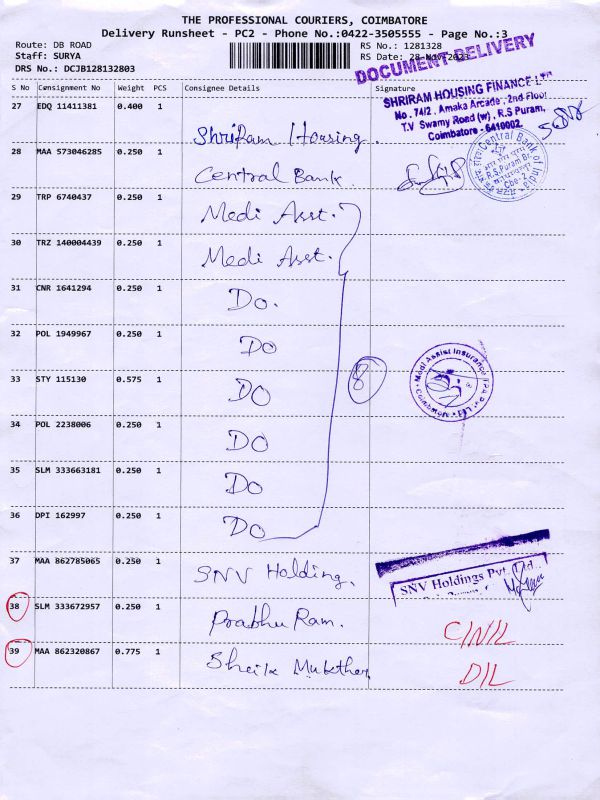 THE PROFESSIONAL COURIERS, COIMBATORE
Delivery Runsheet - PC2 - Phone No.:0422-3505555 - Page No.:3
Route: DB ROAD
RS No.: 1281328
Staff: SURYA
RS Date: 28-Nov-2023
DRS No.: DCJB128132803
DOCUMENT DELIVERY
S No Consignment No Weight PCS Consignee Details Signature
SHRIRAM HOUSING FINANCE LTD
No. 74/2, Amaka Arcade, 2nd Floor
T.V Swamy Road (w), R.S Puram,
Coimbatore - 6410002.
27 EDQ 11411381 0.400 1 Shriram Housing
28 MAA 573046285 0.250 1 Central Bank.
Central Bank of India
R.S. Puram Br.
Cbe-2
29 TRP 6740437 0.250 1 Medi Asst.
30 TRZ 140004439 0.250 1 Medi Asst.
31 CNR 1641294 0.250 1 Do.
32 POL 1949967 0.250 1 Do
33 STY 115130 0.575 1 Do
8
Medi Assist Insurance TPA Pvt. Ltd.
Coimbatore
34 POL 2238006 0.250 1 Do
35 SLM 333663181 0.250 1 Do
36 DPI 162997 0.250 1 Do
37 MAA 862785065 0.250 1 SNV Holding.
SNV Holdings Pvt. Ltd.
38 SLM 333672957 0.250 1 Prabhu Ram. C/N/L
39 MAA 862320867 0.775 1 Sheik Mukthar D/L